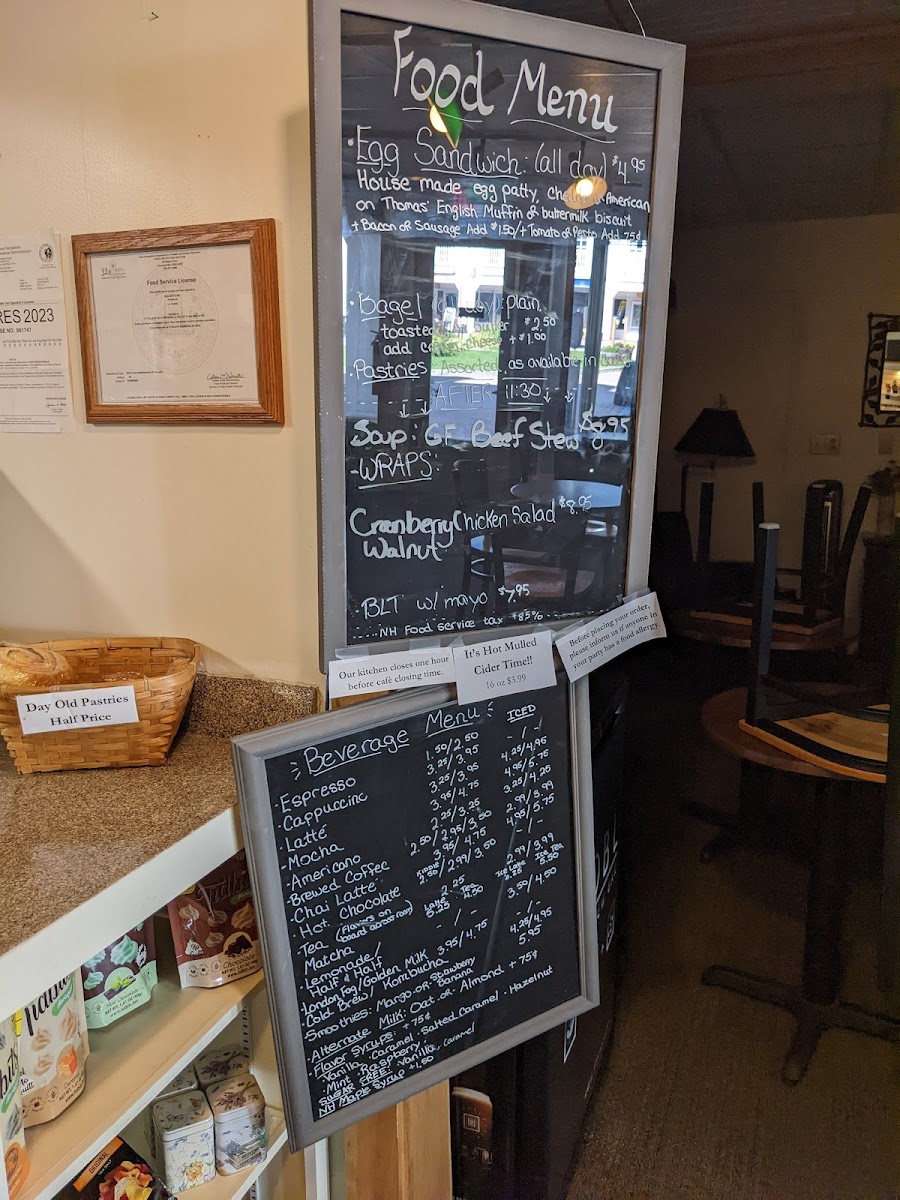 Food Menu
·Egg Sandwich: (all day) $4.95
House made egg patty, American
on Thomas' English Muffin or buttermilk biscuit
+ Bacon or Sausage Add $1.50/+Tomato or Pesto Add 75¢
·Bagel plain
toasted $2.50
add +$1.00
·Pastries Assorted, as available in
↓ ↓ AFTER 11:30 ↓ ↓
Soup: GF Beef Stew $8.95
-WRAPS:
Cranberry Chicken Salad $8.95
Walnut
·BLT w/mayo $7.95
NH Food Service tax
Our kitchen closes one hour
before café closing time.
It's Hot Mulled
Cider Time!!
16 oz $3.99
Before placing your order,
please inform us if anyone in
your party has a food allergy.
Day Old Pastries
Half Price
Food Service License
RES 2023
Beverage Menu: ICED
·Espresso 1.50/2.50 -/-
·Cappuccino 3.25/3.95 4.25/4.95
·Latté 3.25/3.95 4.95/5.75
·Mocha 3.95/4.75 3.25/4.25
·Americano 2.25/3.25 2.99/3.99
·Brewed Coffee 2.50/2.95/3.50 4.95/5.75
·Chai Latté 3.95/4.75 -/-
·Hot Chocolate 2.50/2.99/3.50 2.99/3.99
·Tea (Flavors on
board across room) 2.25
·Matcha Latte 5.25 Tea 4.50
·Lemonade/
Half & Half -/- 3.50/4.50
·London Fog/Golden Milk 3.95/4.75 -/-
·Cold Brew/Kombucha 4.25/4.95
·Smoothies: Mango or Strawberry Banana 5.95
·Alternate Milk: Oat or Almond +75¢
·Flavor Syrups: +75¢
Vanilla·Caramel·Salted Caramel·Hazelnut
·Mint·Raspberry
SUGAR FREE: Vanilla, Caramel
NH Maple Syrup +1.50
Chocolate
ORIGINAL